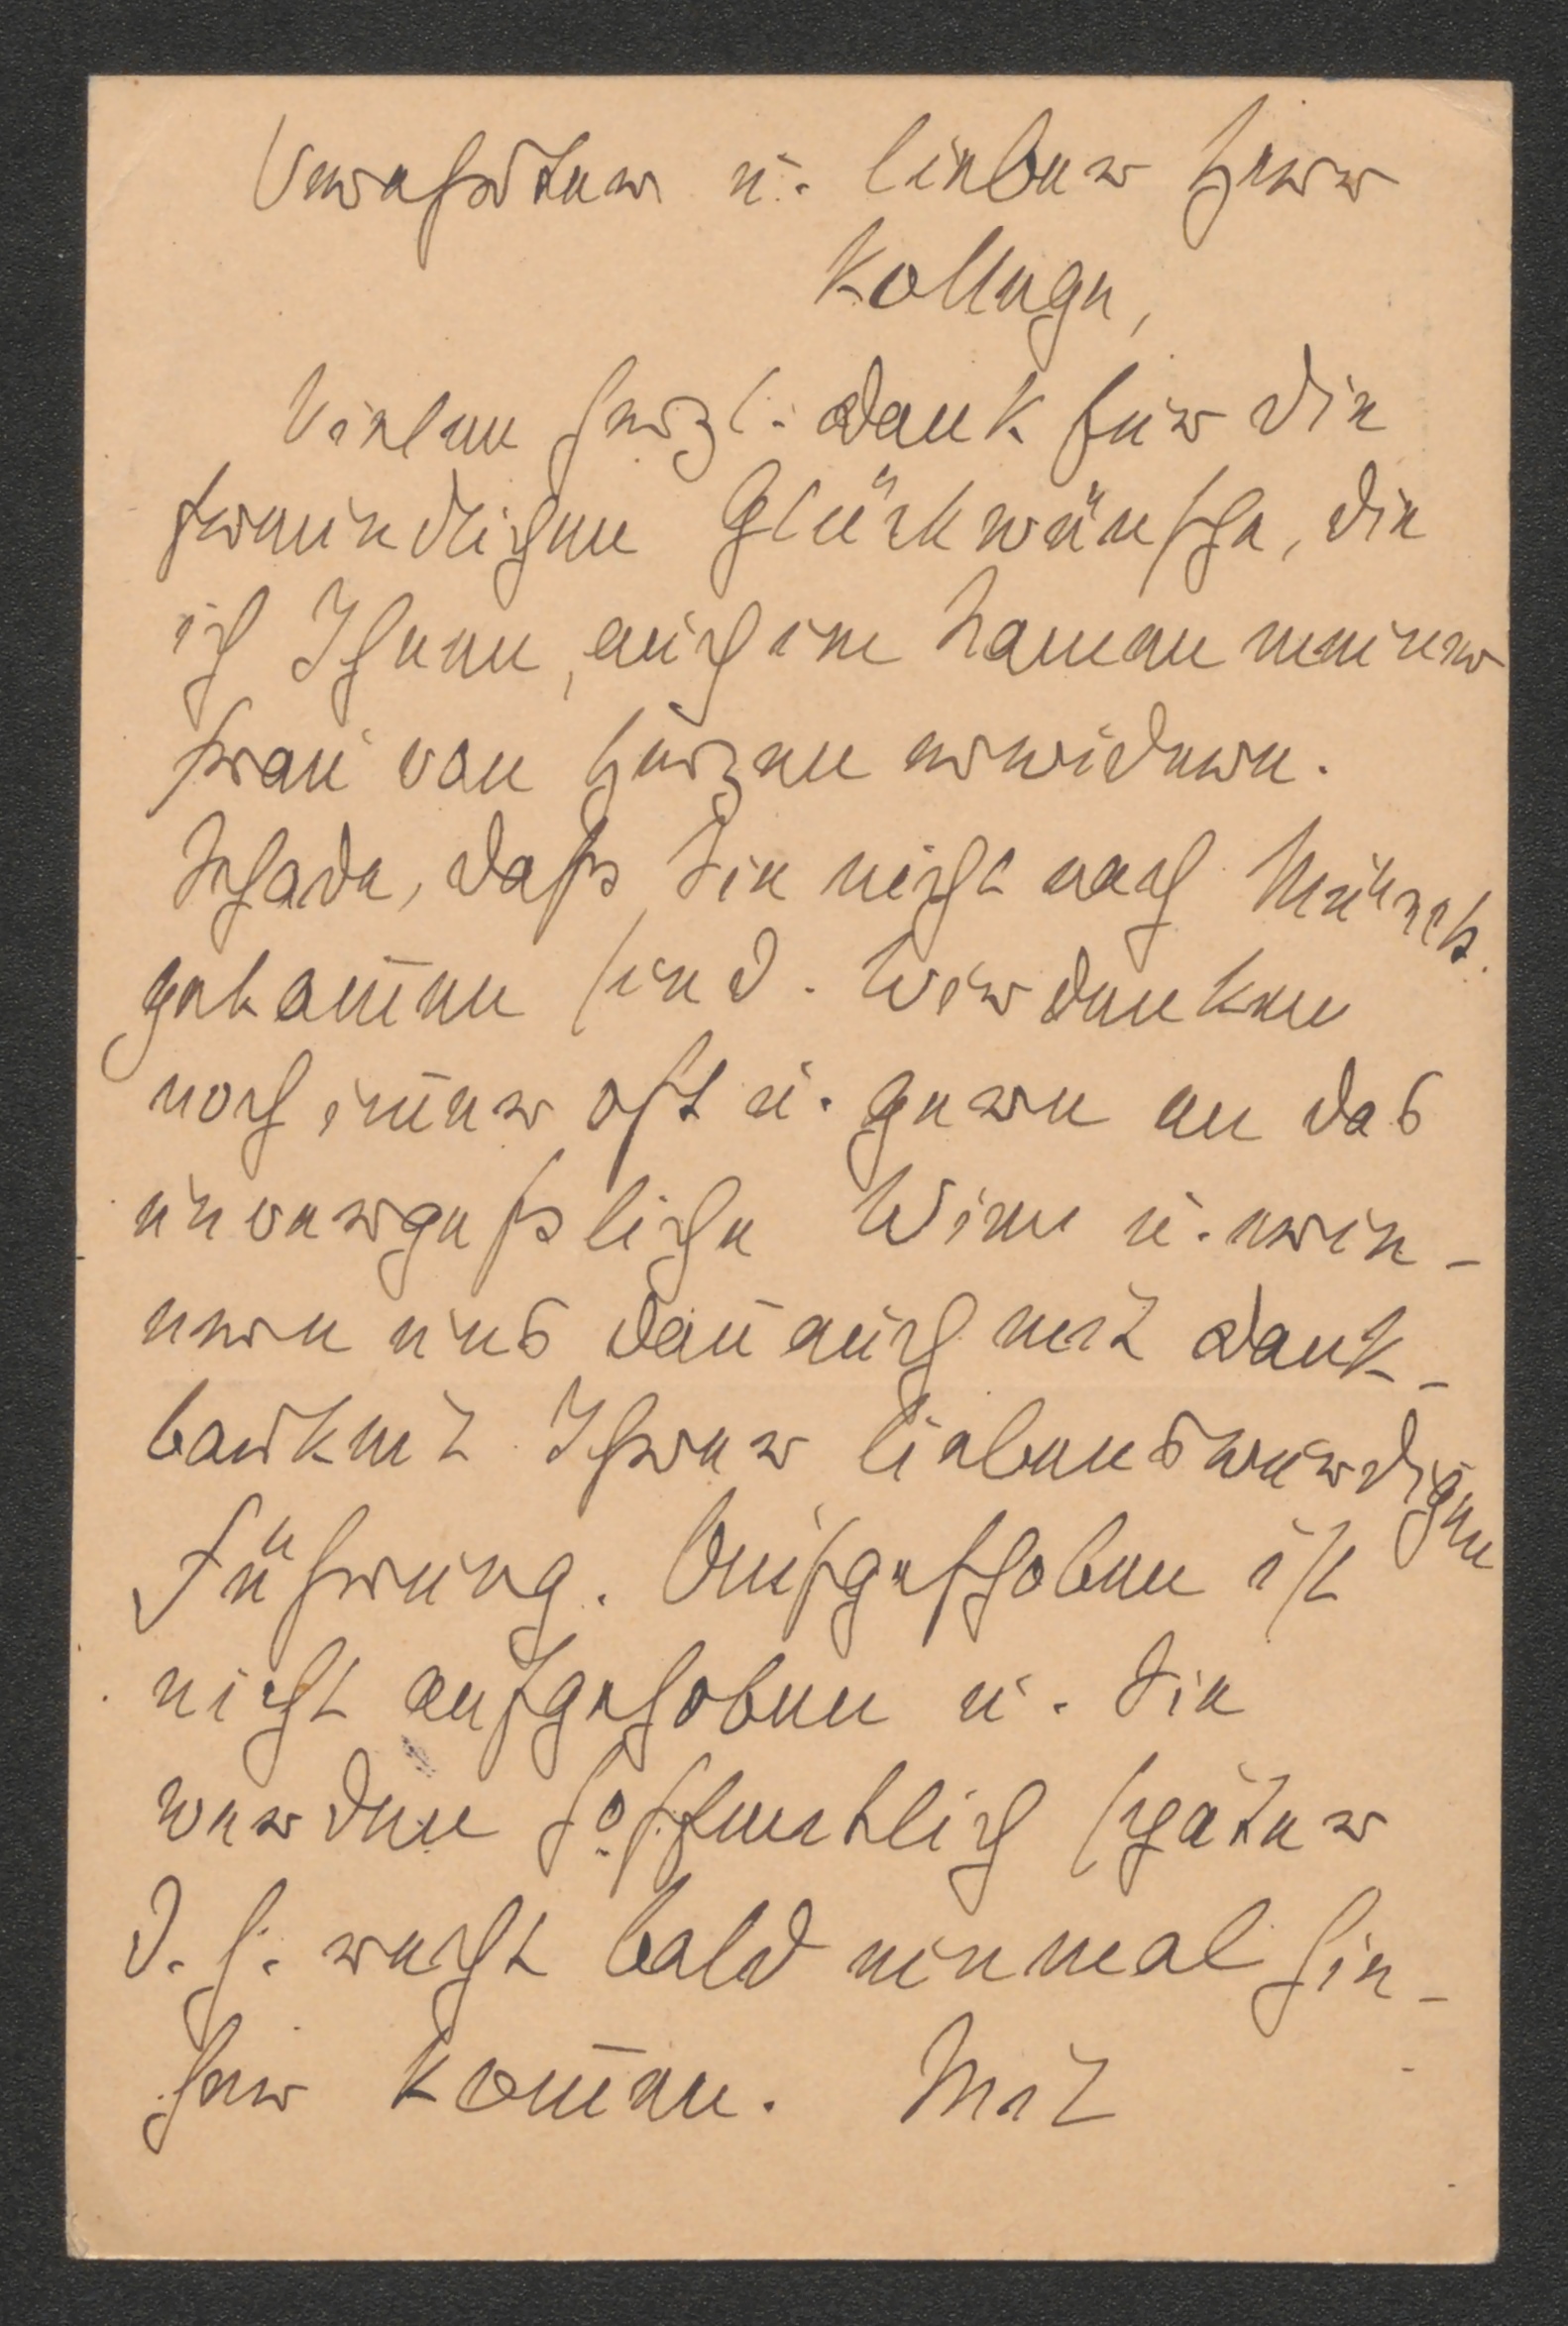 Verehrter u. lieber Herr
Kollege,
Vielen herzl. Dank für die
freundlichen Glückwünsche, die
ich Ihnen, auch im Namen meiner
Frau von Herzen erwidern.
Schade, daß Sie nicht nach Münch.
gekom̅en sind. Wir denken
noch im̅er oft u. gern an das
unvergeßliche Wien u. erin-
nern uns dan̅ auch mit Dank-
barkeit Ihrer liebenswürdigen
Führung. Aufgeschoben ist
nicht aufgehoben u. Sie
werden hoffentlich später
d. h. recht bald einmal hie-
her kom̅en. Mit